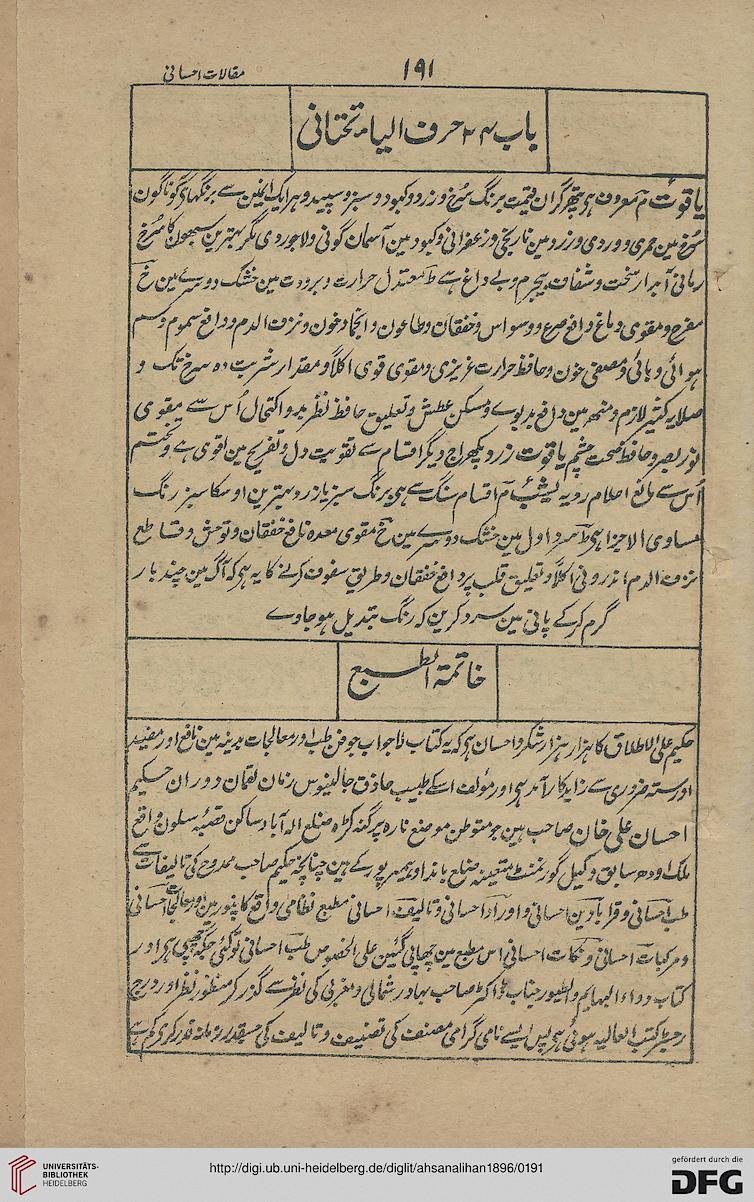 ۱۹۱
مقالات احسانی
باب ۲۴ حرف الیاء تحتانی
یاقوت م معروف ہی پتھر گران قیمت برنگ سُرخ و زرد و کبود و سبز و سپید و ہر ایک انمین سے برنگہاے گوناگون
سُرخ مین حمری و وردی و زرد مین نارنجی و زعفرانی و کبود مین آسمان گونی و لاجوردی مگر بہترین سبھون کا سُرخ
رمانی آبدار سخت و شفاف بیجرم و بے داغ ہے ط معتدل حرارت و برودت مین خشک دوسرے مین خ
مفرح و مقوی دماغ دافع صرع و وسواس و خفقان و طاعون و انجماد خون و نزف الدم و دافع سموم و سم
ہوائی وبائی و مصفی خون و حافظ حرارت غریزی و مقوی قوی اکلاً و مقدار شربت دہ سرخ تک و
صلایہ کثیر لازم و منھ مین دافع بدبوے و مسکن عطش و تعلیق حافظ نظر بد و اکتحال اُس سے مقوی
نور بصر و حافظ صحت چشم یاقوت زرد پکھراج دیگر اقسام سے تقویت دل و تفریح مین اقوی ہے و تختم
اُس سے مانع احلام ردیہ یشب م اقسام سنگ سے ہی برنگ سبز یا زرد بہترین اوسکا سبز رنگ
مساوی الاجزا ہی ط سرد اول مین خشک دوسرے مین خ مقوی معدہ نافع خفقان و توحش و قاطع
نزف الدم اندرونی اکلاً و تعلیق قلب پر دافع خفقان و طریق سفوف کرنے کا یہ ہی کہ آگ مین چند بار
گرم کرکے پانی مین سرد کرین کہ رنگ تبدیل ہو جاوے
خاتمۃ الطبع
حکیم علی الاطلاق کا ہزار ہزار شکر و احسان ہی کہ یہ کتاب لاجواب جو فن طب اور معالجات بدنیہ مین نافع اور مفید
اور ستہ ضروری سے زاید کارآمد ہی اور مؤلف اسکے طبیب حاذق جالینوس زمان لقمان دوران حکیم
احسان علی خان صاحب ہین جو متوطن موضع نارہ پرگنہ کڑہ ضلع الہ آباد ساکن قصبۂ سلون واقع
ملک اودھ سابق وکیل گورنمنٹ متعینہ ضلع باندا و ہمیرپور کے ہین چنانچہ حکیم صاحب ممدوح کی تالیفات سے
طب احسانی و قرابادین احسانی و اوراد احسانی و تالیف احسانی مطبع نظامی واقع کانپور مین اور معالجات احسانی
و مرکبات احسانی و نکات احسانی اس مطبع مین چھاپی گئین علی الخصوص طب احسانی تو کئی جگہ چھپی ہی اور
کتاب دواء البہایم و الطیور جناب ڈاکٹر صاحب بہادر شمالی و مغربی کی نظر سے گذر کر منظور نظر اور درج
رجسٹر کتب العالیہ ہوئی ہی پس ایسے نامی گرامی مصنف کی تصنیف و تالیف کی جسقدر زمانہ قدر کری کم ہے
UNIVERSITÄTS-
BIBLIOTHEK
HEIDELBERG
http://digi.ub.uni-heidelberg.de/diglit/ahsanalihan1896/0191
gefördert durch die
DFG